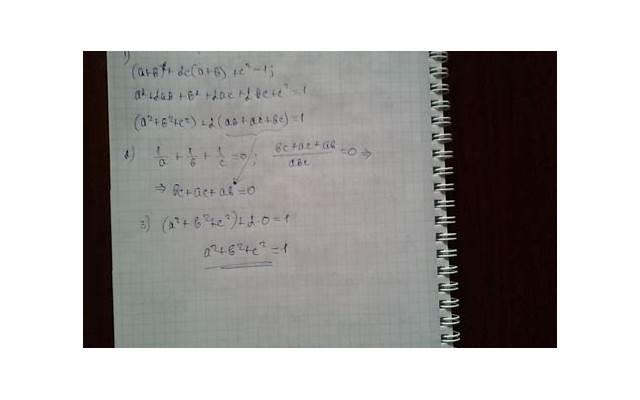 1)
(a+b)²+2c(a+b)+c²=1;
a²+2ab+b²+2ac+2bc+c²=1
(a²+b²+c²)+2(ab+ac+bc)=1
2) 1/a + 1/b + 1/c =0; (bc+ac+ab)/abc =0 ⇒
⇒ bc+ac+ab=0
3) (a²+b²+c²)+2·0=1
a²+b²+c²=1